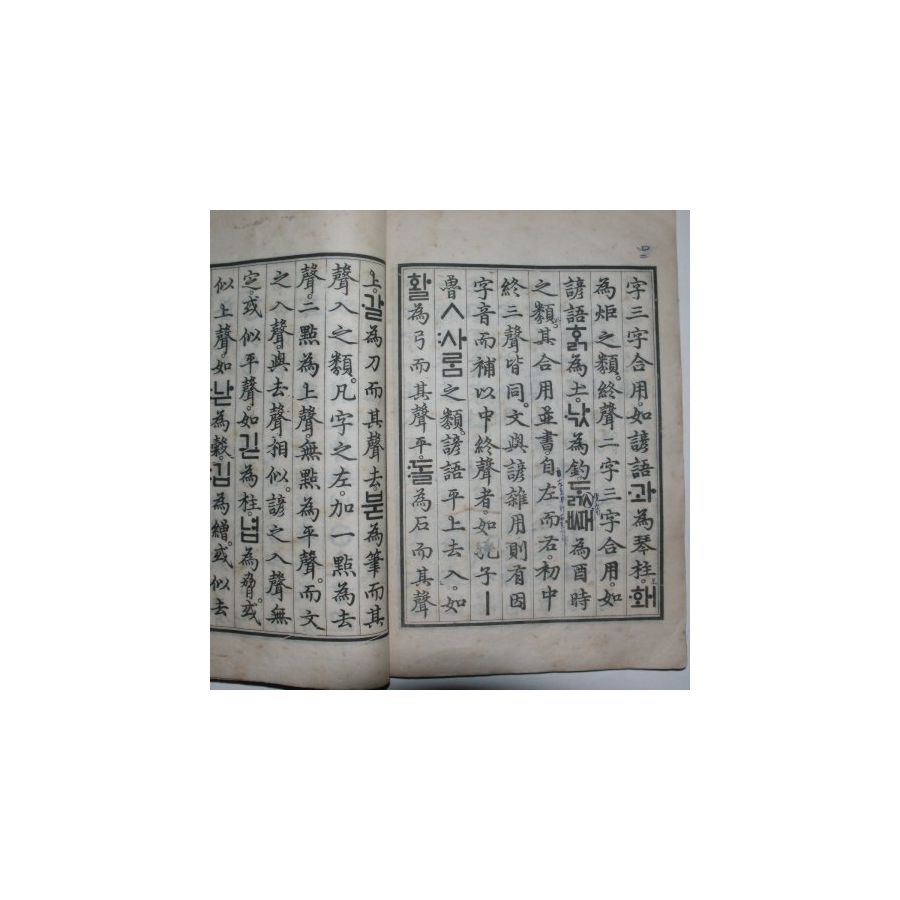 字三字合用。如諺語·과為琴柱。·홰
為炬之類。終聲二字三字合用。如
諺語ᄒᆞᆰ為土。·낛為釣。ᄃᆞᇌᄣᅢ為酉時
之類。其合用並書。自左而右。初中
終三聲皆同。文與諺雜用則有因
字音而補以中終聲者。如孔子ㅣ
魯ㅅ:사ᄅᆞᆷ之類。諺語平上去入。如
활為弓而其聲平。:돌為石而其聲
上。·갈為刀而其聲去。·붇為筆而其
聲入之類。凡字之左。加一點為去
聲。二點為上聲。無點為平聲。而文
之入聲。與去聲相似。諺之入聲無
定。或似平聲。如긷為柱。녑為脅。或
似上聲。如:낟為穀。:깁為繒。或似去